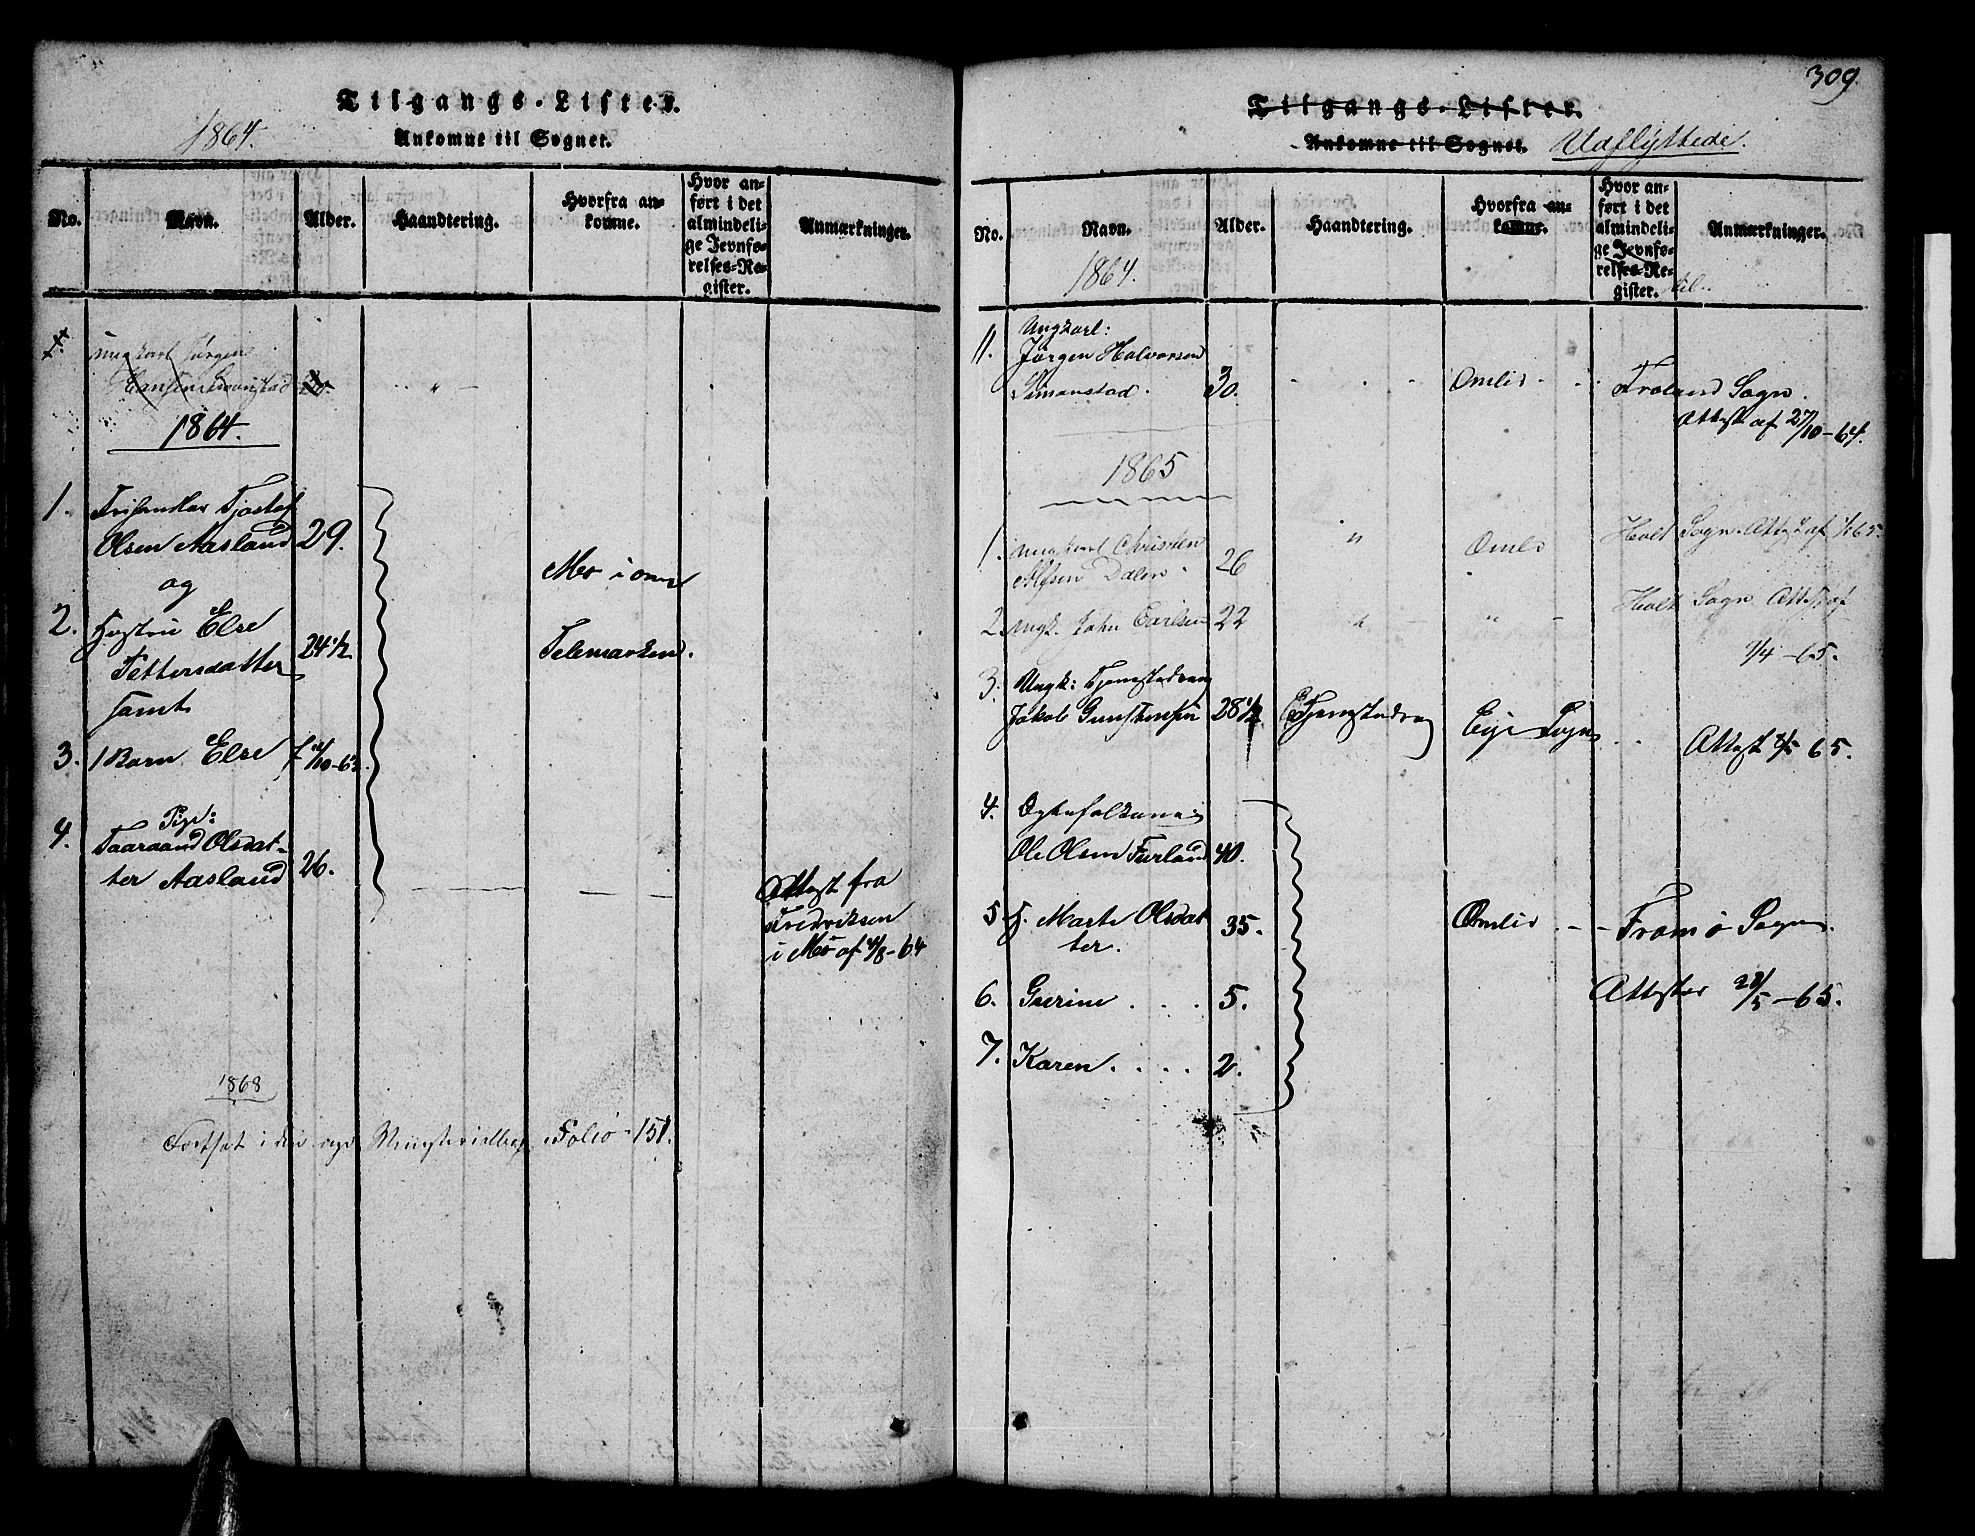 Tilgangs-Lister.
1864.
Ankomne til Sognet.
No. Navn. Alder. Haandtering. Hvorfra an-
komne. Hvor an-
ført i det
almindeli-
ge Jevnfø-
relses-Re-
gister. Anmærkninger.
Ungkarl Jørgen
1864.
1. Tjostof
Olsen Aasland 29.
og
Mo i øvre
2. Hustru Else
Pettersdatter 24 1/2 Telemarken.
samt
3. 1 Barn Else
4. Pige:
Taaraand Olsdat-
ter Aasland 26.
Attest fra
Fredriksen
i Mo af 4/8-64
1868
Fortsat i den nye Ministerialbog Folio 151.
309
Tilgangs-Lister.
Ankomne til Sognet. Udflyttede.
No. Navn. Alder. Haandtering. Hvorfra an-
komne. Hvor an-
ført i det
almindeli-
ge Jevnfø-
relses-Re-
gister. Anmærkninger.
1864. til
11. Ungkarl:
Jørgen Halvorsen
Simonstad. 30. Omlid Froland Sogn.
Attest af 27/10-64.
1865
1. Ungkarl Christen 26 " Omli Holt Sogn. Attest af
Dalen
2. Ungk. John Carlsen 22 " " Holt Sogn Attest af
9/4-65.
3. Ungk:
Jakob Gunstensen 28 1/2 Eie Sogn
Attest 2/5 65.
4. Ægtefolkene
Ole Olsen Furland 40.
5. H. Marte Olsdat-
ter. 35. Omlid Tromø Sogn.
6. Gurine . . . 5. Attester 28/5-65.
7. Karen . . . . 2.